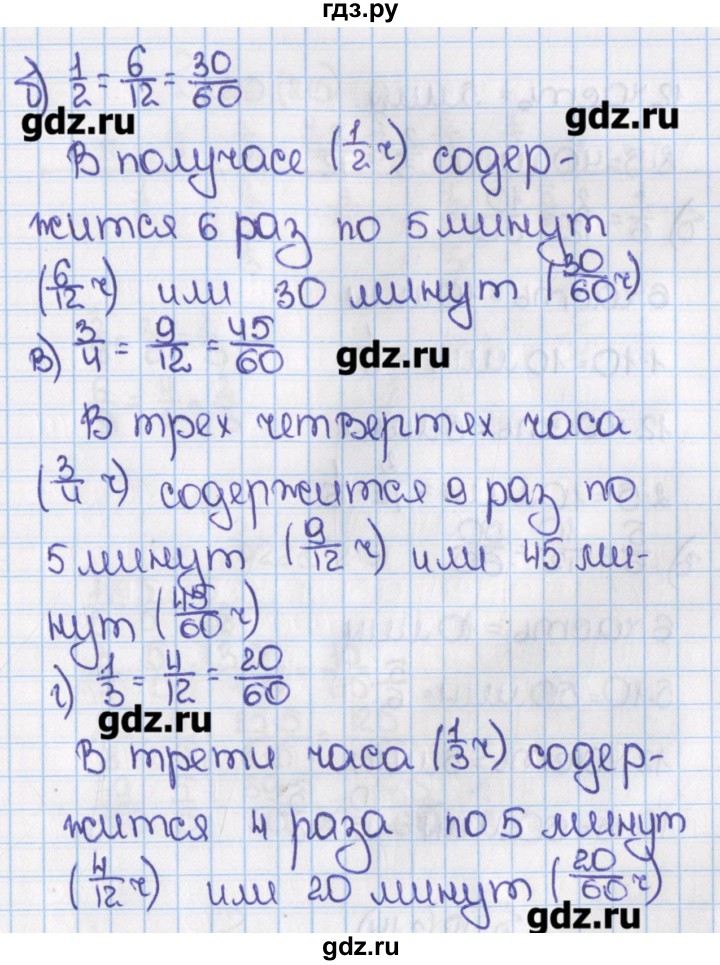 гдз.ру
б) 1/2 = 6/12 = 30/60
gdz.ru
gdz.ru
В получасе (1/2 ч) содер-
жится 6 раз по 5 минут
(6/12 ч) или 30 минут (30/60 ч)
в) 3/4 = 9/12 = 45/60
gdz.ru
В трех четвертях часа
(3/4 ч) содержится 9 раз по
5 минут (9/12 ч) или 45 ми-
нут (45/60 ч)
г) 1/3 = 4/12 = 20/60
gdz.ru
В трети часа (1/3 ч) содер-
жится 4 раза по 5 минут
(4/12 ч) или 20 минут (20/60 ч)
gdz.ru
gdz.ru